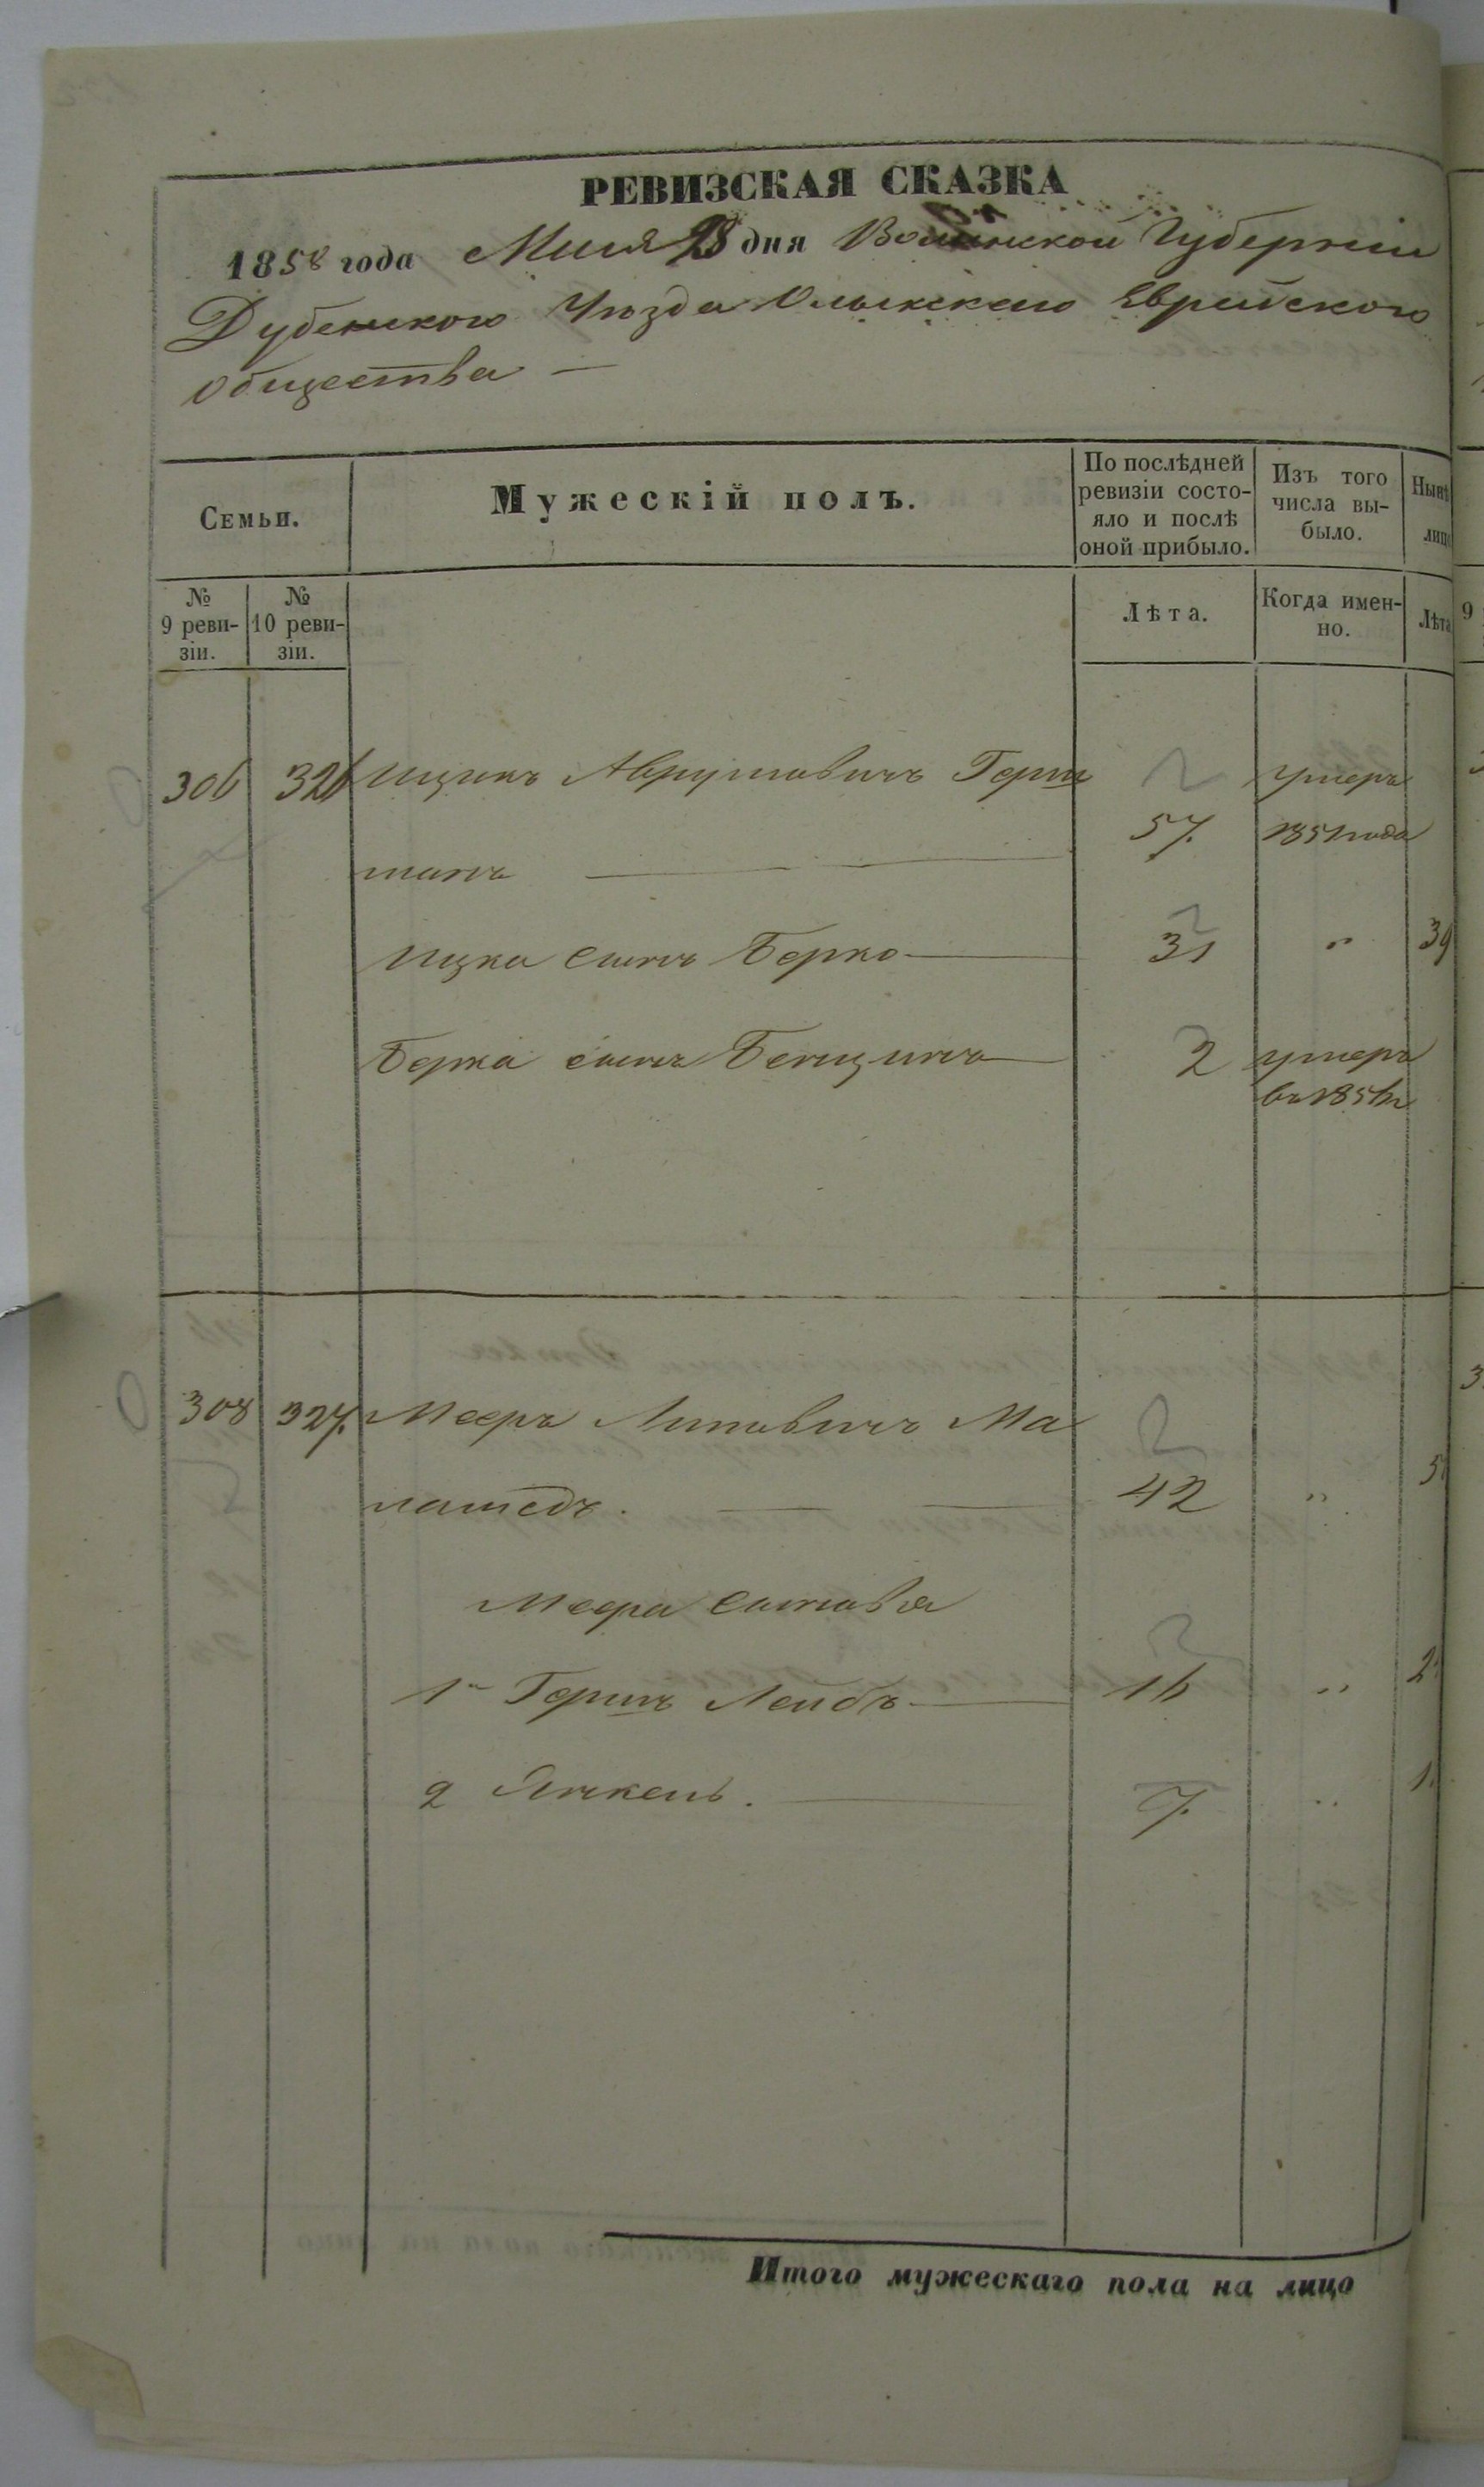 РЕВИЗСКАЯ СКАЗКА
1858 года Мая 28 дня Волынской Губерніи
Дубенскаго Уѣзда Олыкскаго Еврейскаго
Общества —
Семьи.
Мужескій полъ.
По послѣдней ревизіи состо-
яло и послѣ
оной прибыло.
Изъ того
числа вы-
было.
Нынѣ
лицо
№
9 реви-
зіи.
№
10 реви-
зіи.
Лѣта.
Когда имен-
но.
Лѣта
306 326 Ицикъ Аврумовичъ Герш умеръ
манъ — 57. 1851 года
Ицка сынъ Берко — 31 " 39
Берка сынъ Бенцинъ — 2 умеръ
308 327. Мееръ Липовичъ Ма
ламедъ. — 42 " 5
Меера сыновья
1й Гершъ Лейбъ — 16 " 2
2 Янкель. — 7. " 1
Итого мужескаго пола на лицо